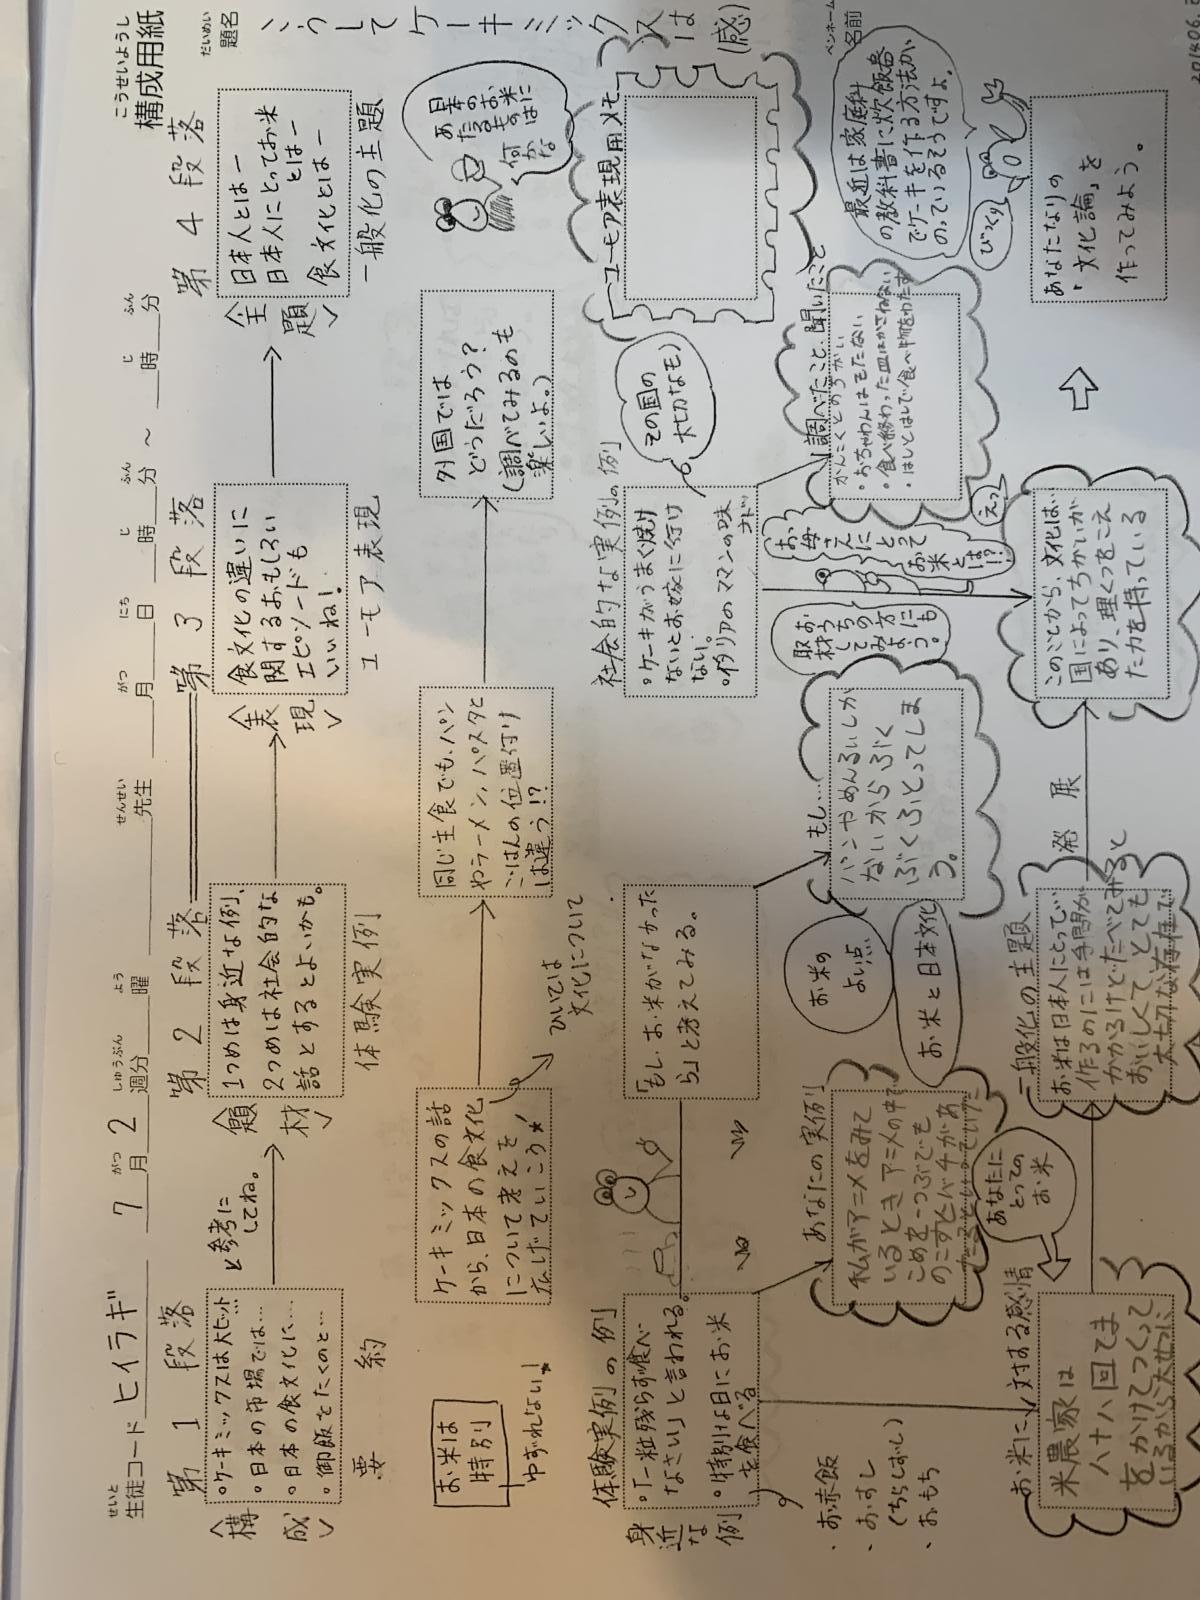 構成用紙
こうせいようし
題名
だいめい
こうしてケーキミックスは(感)
ペンネーム
名前
生徒コード ヒイラギ 7月2週分 曜 先生 月 日 時 分 〜 時 分
せいと
がつ
しゅうぶん
よう
せんせい
がつ
にち
じ
ふん
じ
ふん
第1段落
第2段落
第3段落
第4段落
〈構成〉
・ケーキミックスは大ヒット…
・日本の市場では…
・日本の食文化に…
・御飯をたくのと…
要約
と参考にしてね。
〈題材〉
1つめは身近な例、
2つめは社会的な
話とするとよいかも。
体験実例
〈表現〉
食文化の違いに
関するおもしろい
エピソードも
いいね！
ユーモア表現
〈主題〉
日本人とはー
日本人にとってお米
とはー
食文化とはー
一般化の主題
お米は
特別
ゆずれない！
ケーキミックスの話
から、日本の食文化
について考えを
広げていこう
ひいては
文化について
同じ主食でも、パン
やラーメン、パスタと
ごはんの位置付け
は違う!?
外国では
どうだろう？
(調べてみるのも
楽しいよ。)
日本のお米に
あたるものは
何かな
体験実例の例
身近な例
・「一粒残らず食べ
なさい」と言われる。
・特別な日にお米
を食べる
・お赤飯
・おすし
(ちらしずし)
・おもち
「もし、お米がなかった
ら」と考えてみる。
社会的な実例の例
・ケーキがうまく焼け
ないとお嫁に行け
ない。
・イタリアのママンの味
その国の
大切なもの
ユーモア表現用メモ
あなたの実例
私がアニメをみて
いるときアニメの中で
こめを一つぶでも
のこすとバチがあ
たる
お米の
よい点
お米と日本文化
もし……
パンやめんるいしか
ないからぶくぶく
ぶくぶくふとってしま
う。
取材してみよう。
おうちの方にも
お母さんにとって
お米とは!?
えっ
調べたこと、聞いたこと
かんこくとのちがい
・おちゃわんはもたない
・食べ終わった皿はかさねない
・はしとはしで食べ物をわたす
最近は家庭科
の教科書に炊飯器
でケーキを作る方法が、
のっているそうですよ。
びっくり
お米に対する感情
米農家は
八十八回てま
をかけてつくって
いるから大切に
あなたに
とっての
お米
一般化の主題
お米は日本人にとって、
作るのには手間が
かかるけどたべてみると
おいしくて、とても
大切な存在で
発展
このことから、文化は、
国によってちがいが
あり、理くつをこえ
た力を持っている
あなたなりの
・「文化論」を
作ってみよう。